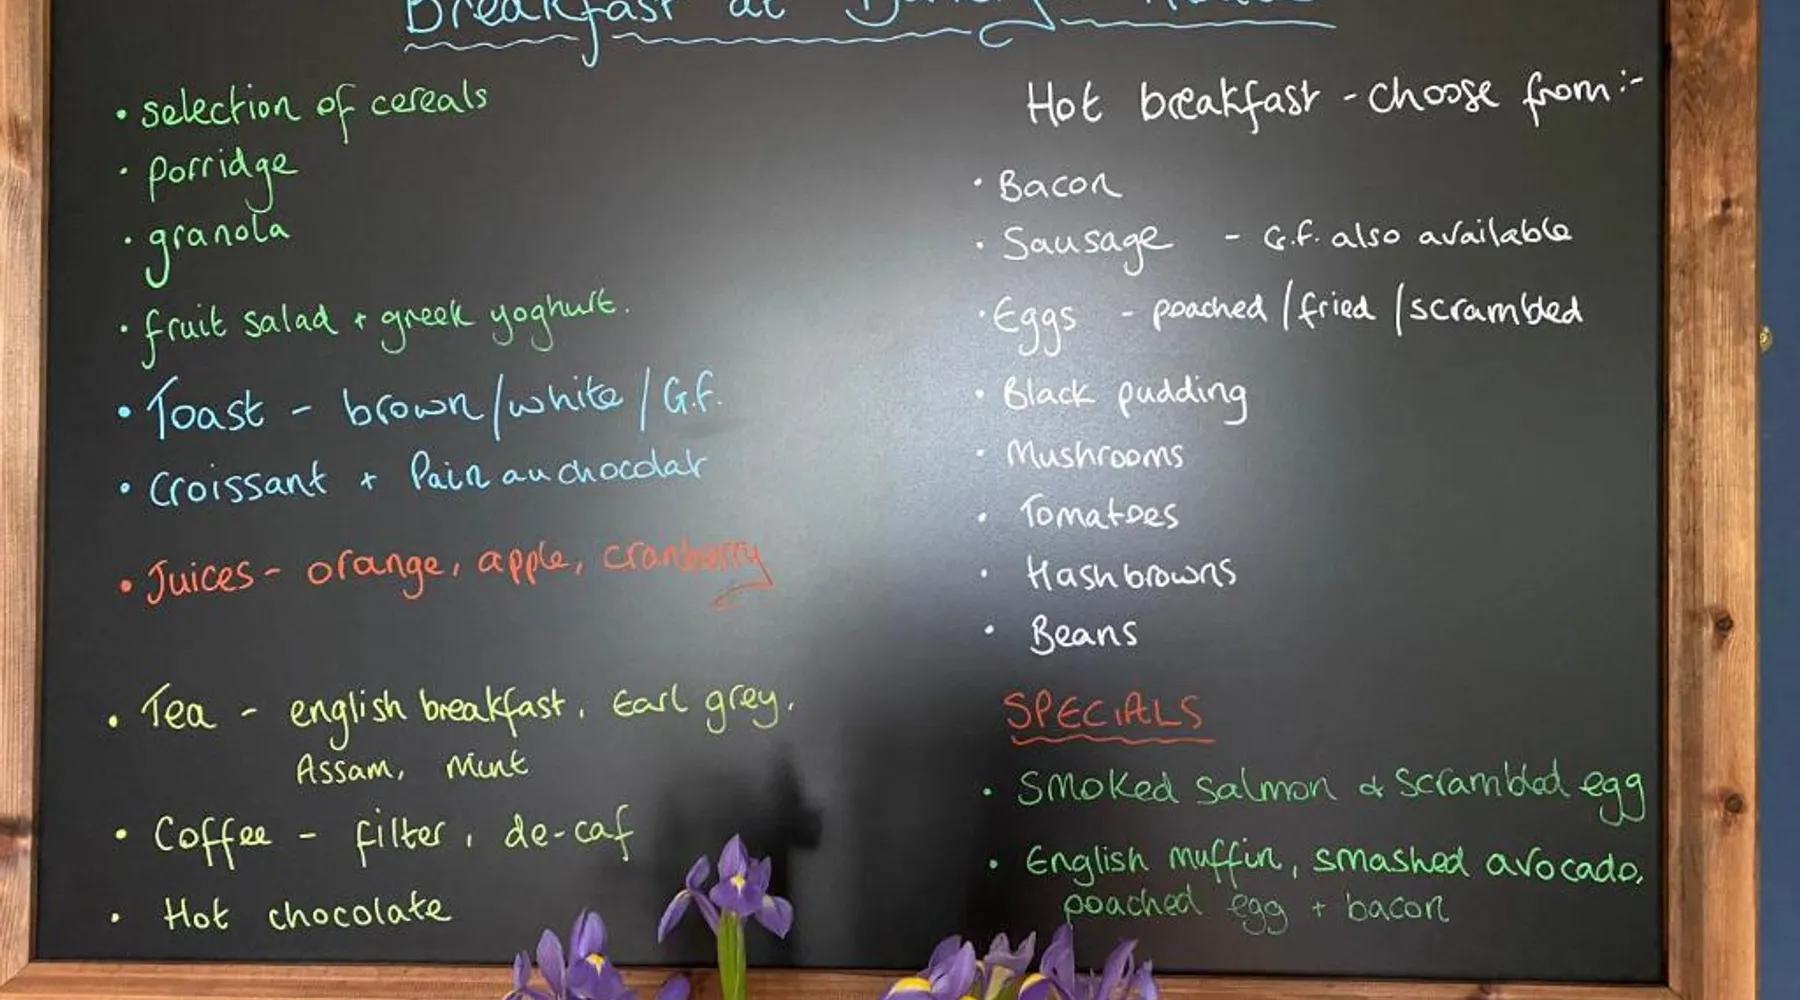 Breakfast at
• selection of cereals
• porridge
• granola
• fruit salad + greek yoghurt.
• Toast - brown/white/G.f.
• Croissant + Pain au chocolat
• Juices - orange, apple, cranberry
• Tea - english breakfast, Earl grey,
Assam, Mint
• Coffee - filter, de-caf
• Hot chocolate
Hot breakfast - choose from:-
• Bacon
• Sausage - G.f. also available
• Eggs - poached/fried/scrambled
• Black pudding
• Mushrooms
• Tomatoes
• Hash browns
• Beans
SPECIALS
• Smoked salmon & scrambled egg
• English muffin, smashed avocado,
poached egg + bacon